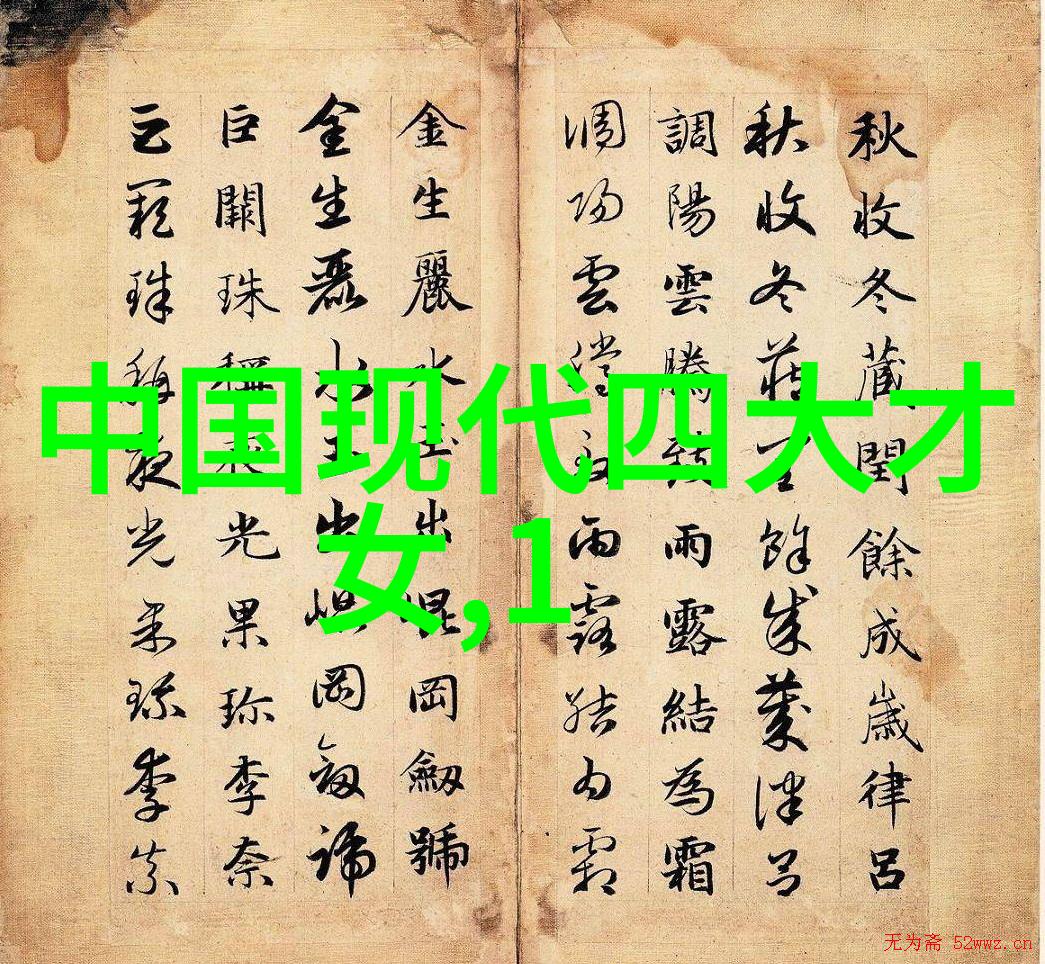 中国现代四大才
女,1
秋收冬藏閏餘成歲律呂
秋收冬藏閏餘成歲律呂
調陽雲騰致雨露結為霜
調陽雲騰致雨露結為霜
金生麗水玉出崐岡劔號
金生麗水玉出崐岡劔號
巨闕珠稱夜光果珍李柰
巨闕珠稱夜光果珍李柰
无为斋 52wwz.cn